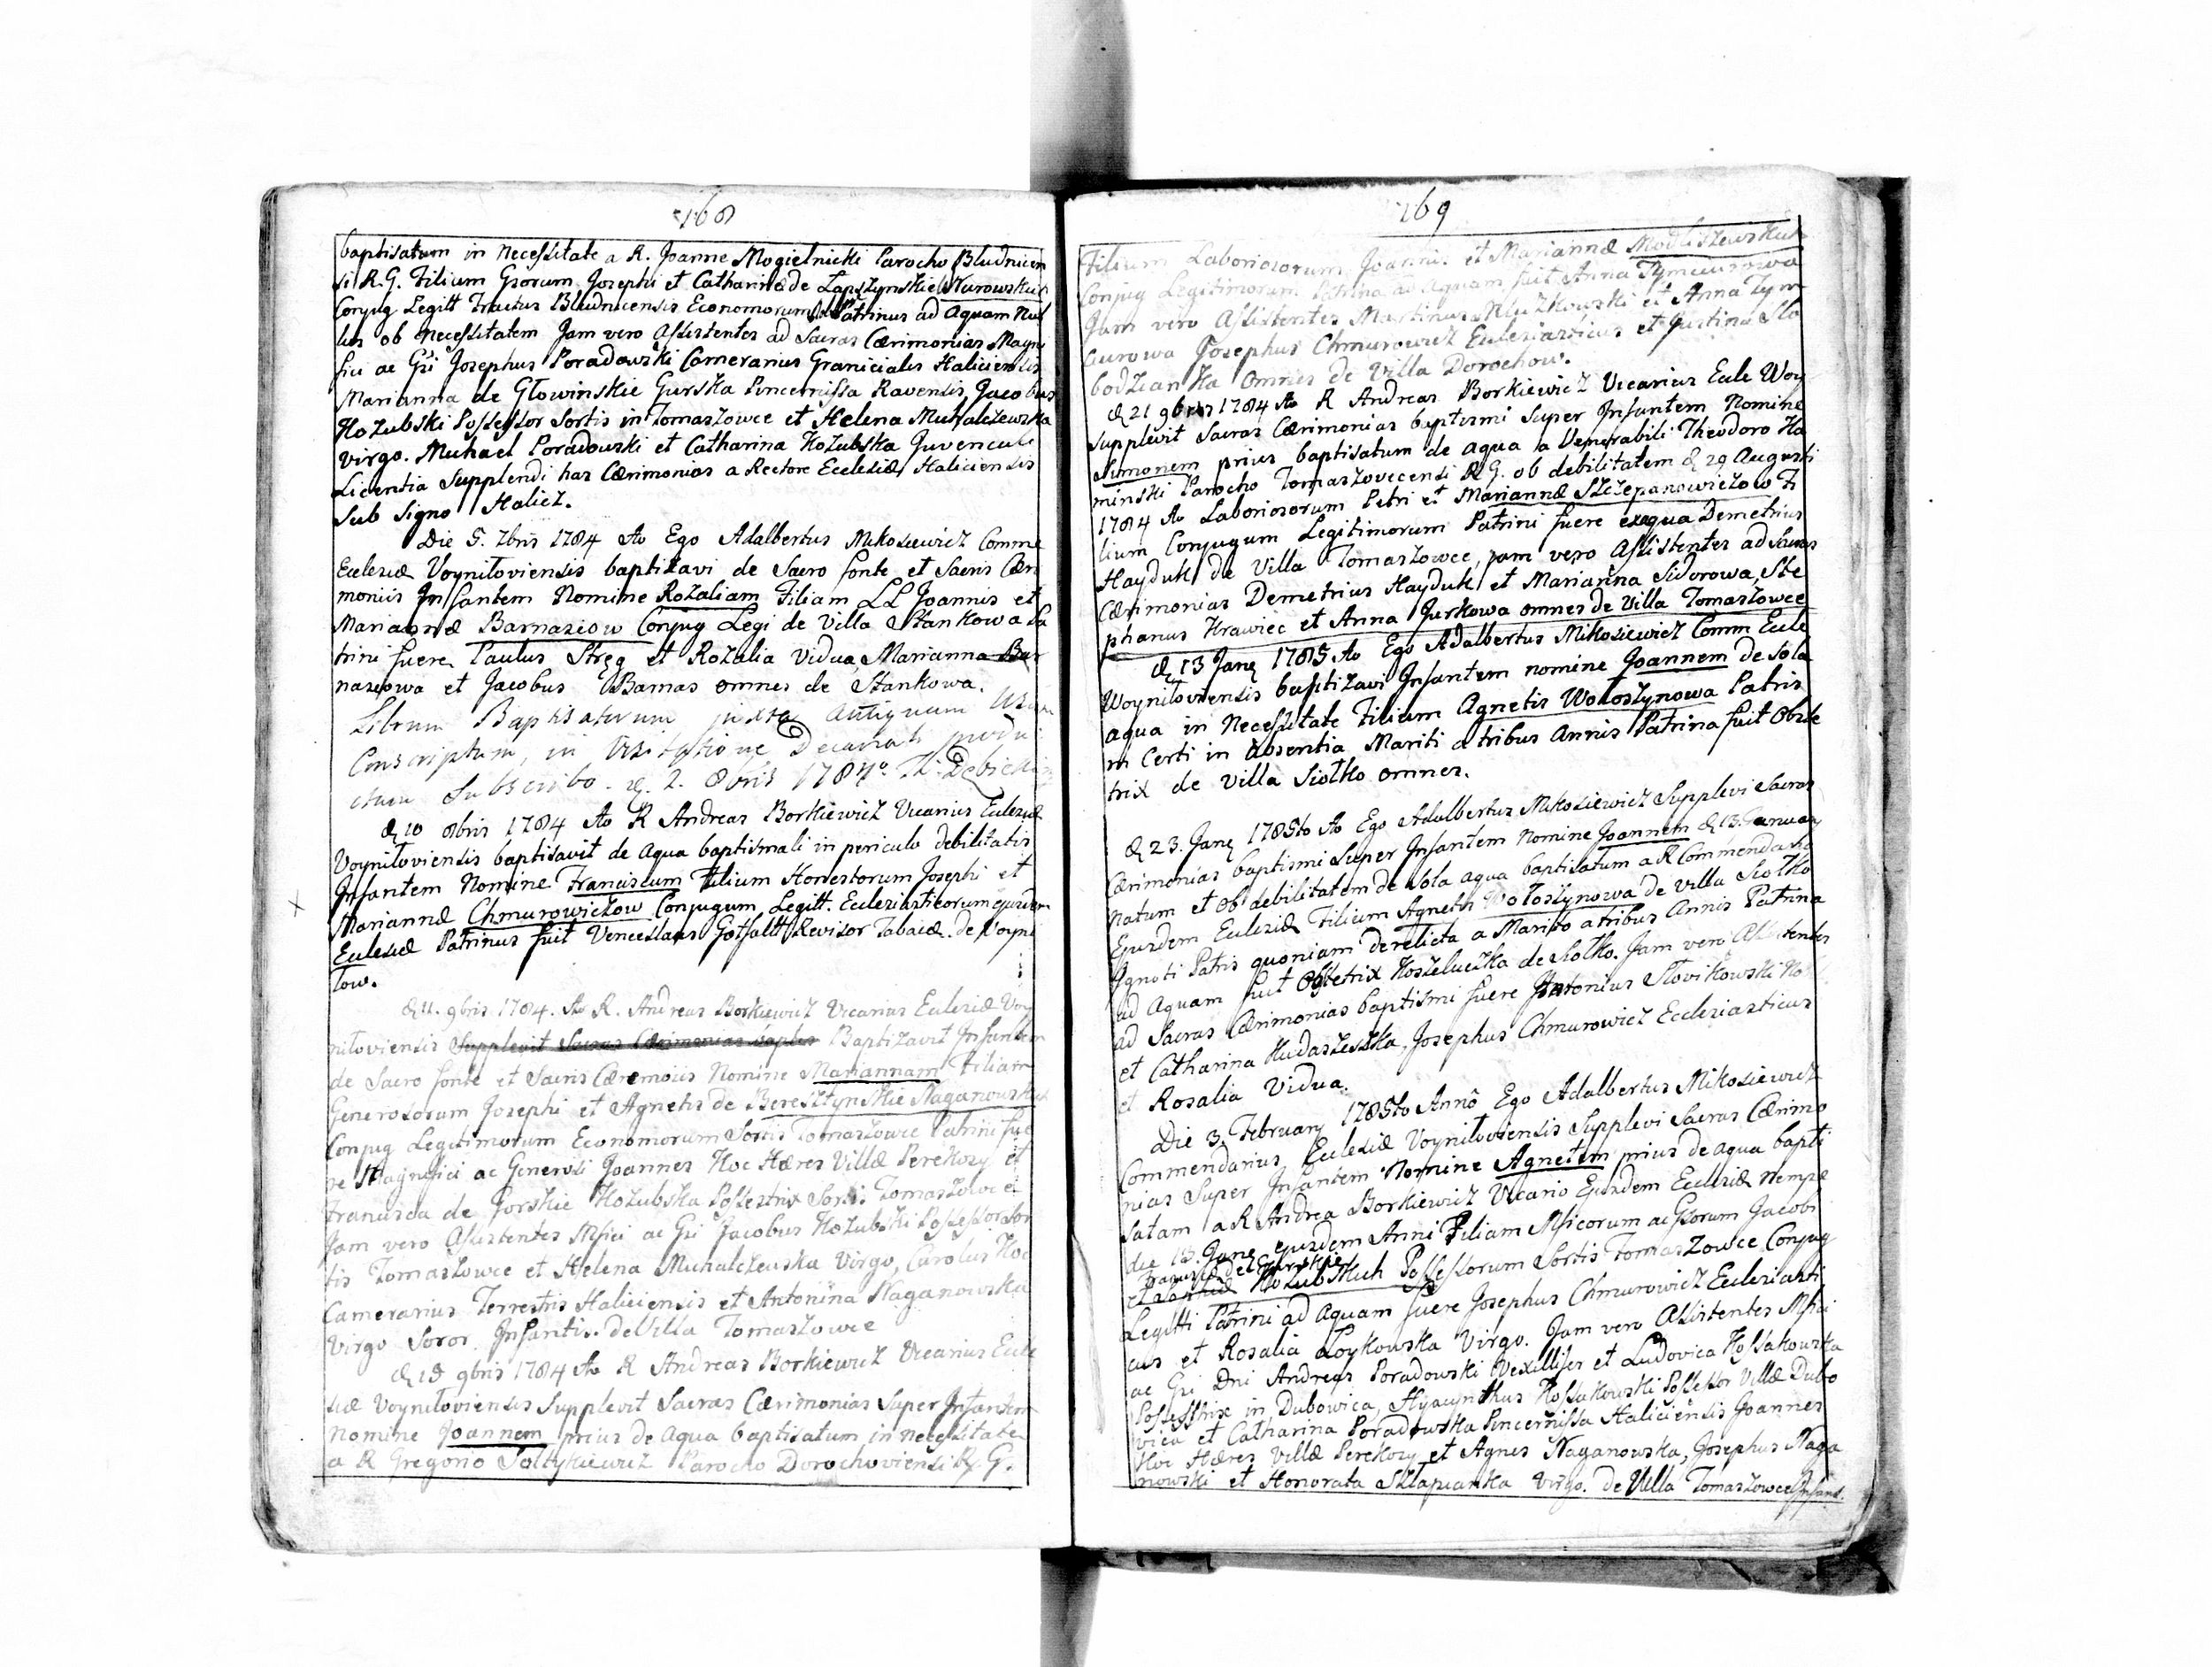 168
baptisatum in necessitate a R. Joanne Mogielnicki Parocho Bludnicen
si R.G. Filium Gsorum Josephi et Catharinæ de Lapszynskie Nurowskich
Conjug Legitt Tractus Bludnicensis Economorum Patrinus ad Aquam Nul
lus ob necessitatem Jam vero Assistentes ad Sacras Cærimonias Magni
fici ac Gsi Josephus Poradowski Camerarius Granicialis Haliciensis
Marianna de Głowinskie Gurska Pincernissa Ravensis, Jacobus
Kozubski Possessor Sortis in Tomaszowce et Helena Muhalczewska
Virgo. Michael Poradowski et Catharina Kozubska Juvenculi
Licentia Supplendi has Cærimonias a Rectore Ecclesiæ Haliciensis
Sub Signo Halicz.
Die 5. 7bris 1784 Ao Ego Adalbertus Mikosiewicz Comme
Ecclesiæ Voyniloviensis baptizavi de Sacro fonte et Sacris Cæri
moniis Infantem Nomine Rozaliam Filiam LL Joannis et
Mariannæ Barnasiow Conjug Legi de Villa Stankowa Pa
trini fuere Paulus Stręg et Rozalia Vidua, Marianna Bar
nasiowa et Jacobus Barnas omnes de Stankowa.
Librum Baptisatorum juxta Antiquum Usum
Conscriptum, in Visitatione Decanali produ
ctum Subscribo. d. 2. 8bris 1784o
d 10 8bris 1784 Ao R Andreas Borkiewicz Vicarius Ecclesiæ
Voyniloviensis baptisavit de Aqua baptismali in periculo debilitatis
Infantem Nomine Franciscum Filium Honestorum Josephi et
Mariannæ Chmurowiczow Conjugum Legitt. Ecclesiasticorum ejusdem
Ecclesiæ Patrinus fuit Venceslaus Gotfaltt Revisor Tabacæ de Voyni
low.
d 11. 9bris 1784. Ao R. Andreas Borkiewicz Vicarius Ecclesiæ Voy
niloviensis Supplevit Sacras Cærimonias baptis Baptizavit Infantem
de Sacro fonte et Sacris Cæremoiis Nomine Mariannam Filiam
Generosorum Josephi et Agnetis de Beresztynskie Naganowskich
Conjug Legitimorum Economorum Sortis Tomaszowce Patrini fue
re Magnifici ac Generosi Joannes Hoc Hæres Villæ Perekosy et
Francisca de Gorskie Kozubska Possestrix Sortis Tomaszowce
Jam vero Assistentes Msici ac Gsi Jacobus Kozubski Possessor Sor
tis Tomaszowce et Helena Muhalczewska Virgo, Carolus Hoc
Camerarius Terrestris Haliciensis et Antonina Naganowska
Virgo Soror Infantis. de Villa Tomaszowce
d 18 9bris 1784 Ao R Andreas Borkiewicz Vicarius Eccle
siæ Voyniloviensis Supplevit Sacras Cærimonias Super Infantem
Nomine Joannem prius de Aqua baptisatum in necessitate
a R Gregorio Soltykiewicz Parocho Dorochoviensi R. G.
169
Filium Laboriosorum Joannis et Mariannæ Modliszewskich
Conjug Legitimorum Patrina ad aquam fuit Anna Tymciurowa
Jam vero Assistentes Martinus Mluzkowski et Anna Tym
ciurowa Josephus Chmurowicz Ecclesiasticus et Justina Slo
bodzian Ka omnes de Villa Dorochow.
d 21 9bris 1784 Ao R Andreas Borkiewicz Vicarius Eccle Woy
Supplevit Sacras Cærimonias baptismi Super Infantem Nomine
Simonem prius baptisatum de aqua a Venerabili Theodoro Ka
minski Parocho Tomaszovecensi R G. ob debilitatem d 29 Augusti
1784 Ao Laboriosorum Petri et Mariannæ Szczepanowiczow Fi
lium Conjugum Legitimorum Patrini fuere exaqua Demetrius
Hayduk de Villa Tomaszowce, jam vero Assistentes ad Sacras
Cærimonias Demetrius Hayduk et Marianna Sidorowa, Ste
phanus Krawiec et Anna Jurkowa omnes de Villa Tomaszowce
d 13 Jany 1785 Ao Ego Adalbertus Mikosiewicz Comm Eccle
Woyniloviensis baptizavi Infantem nomine Joannem de Sola
aqua in Necessitate Filium Agnetis Wołoszynowa Patris
in Certi in absentia Mariti a tribus Annis Patrina fuit Obste
trix de Villa Siołko omnes.
d 23. Jany 1785to Ao Ego Adalbertus Mikosiewicz Supplevi Sacras
Cærimonias baptismi Super Infantem Nomine Joannem d 13. January
natum et ob debilitatem de Sola aqua baptisatum a R Commendario
Ejusdem Ecclesiæ Filium Agnetis Wołoszynowa de Villa Siołko
Ignoti Patris quoniam derelicta a Marito a tribus Annis Patrina
ad Aquam fuit Obstetrix Koszeluczka de Siołko. Jam vero Assistentes
ad Sacras Cærimonias baptismi fuere Antonius Slovikowski
et Catharina Kudaszeszka, Josephus Chmurowicz Ecclesiasticus
et Rosalia Vidua.
Die 3. February 1785to Anno Ego Adalbertus Mikosiewicz
Commendarius Ecclesiæ Voyniloviensis Supplevi Sacras Cærimo
nias Super Infantem Nomine Agnetem prius de aqua bapti
satam a R Andrea Borkiewicz Vicario Ejusdem Ecclesiæ nempe
die 13. Jany ejusdem Anni Filiam Msicorum ac Gsorum Jacobi
Franciscæ de Gurskie
et Kozubskich Possessorum Sortis Tomaszowce Conjug
Legitti Patrini ad Aquam fuere Josephus Chmurowicz Ecclesiasti
cus et Rosalia Loykowska Virgo. Jam vero Assistentes Msici
ac Gsi Dni Andreas Poradowski Vexillifer et Ludovica Kossakowska
Possesstrix in Dubowica, Hyacynthus Kossakowski Possessor Villæ Dubo
wica et Catharina Poradowska Pincernissa Haliciensis Joannes
Hoc Hæres Villæ Perekosy et Agnes Naganowska, Josephus Naga
nowski et Honorata Szlapianka Virgo. de Villa Tomaszowce